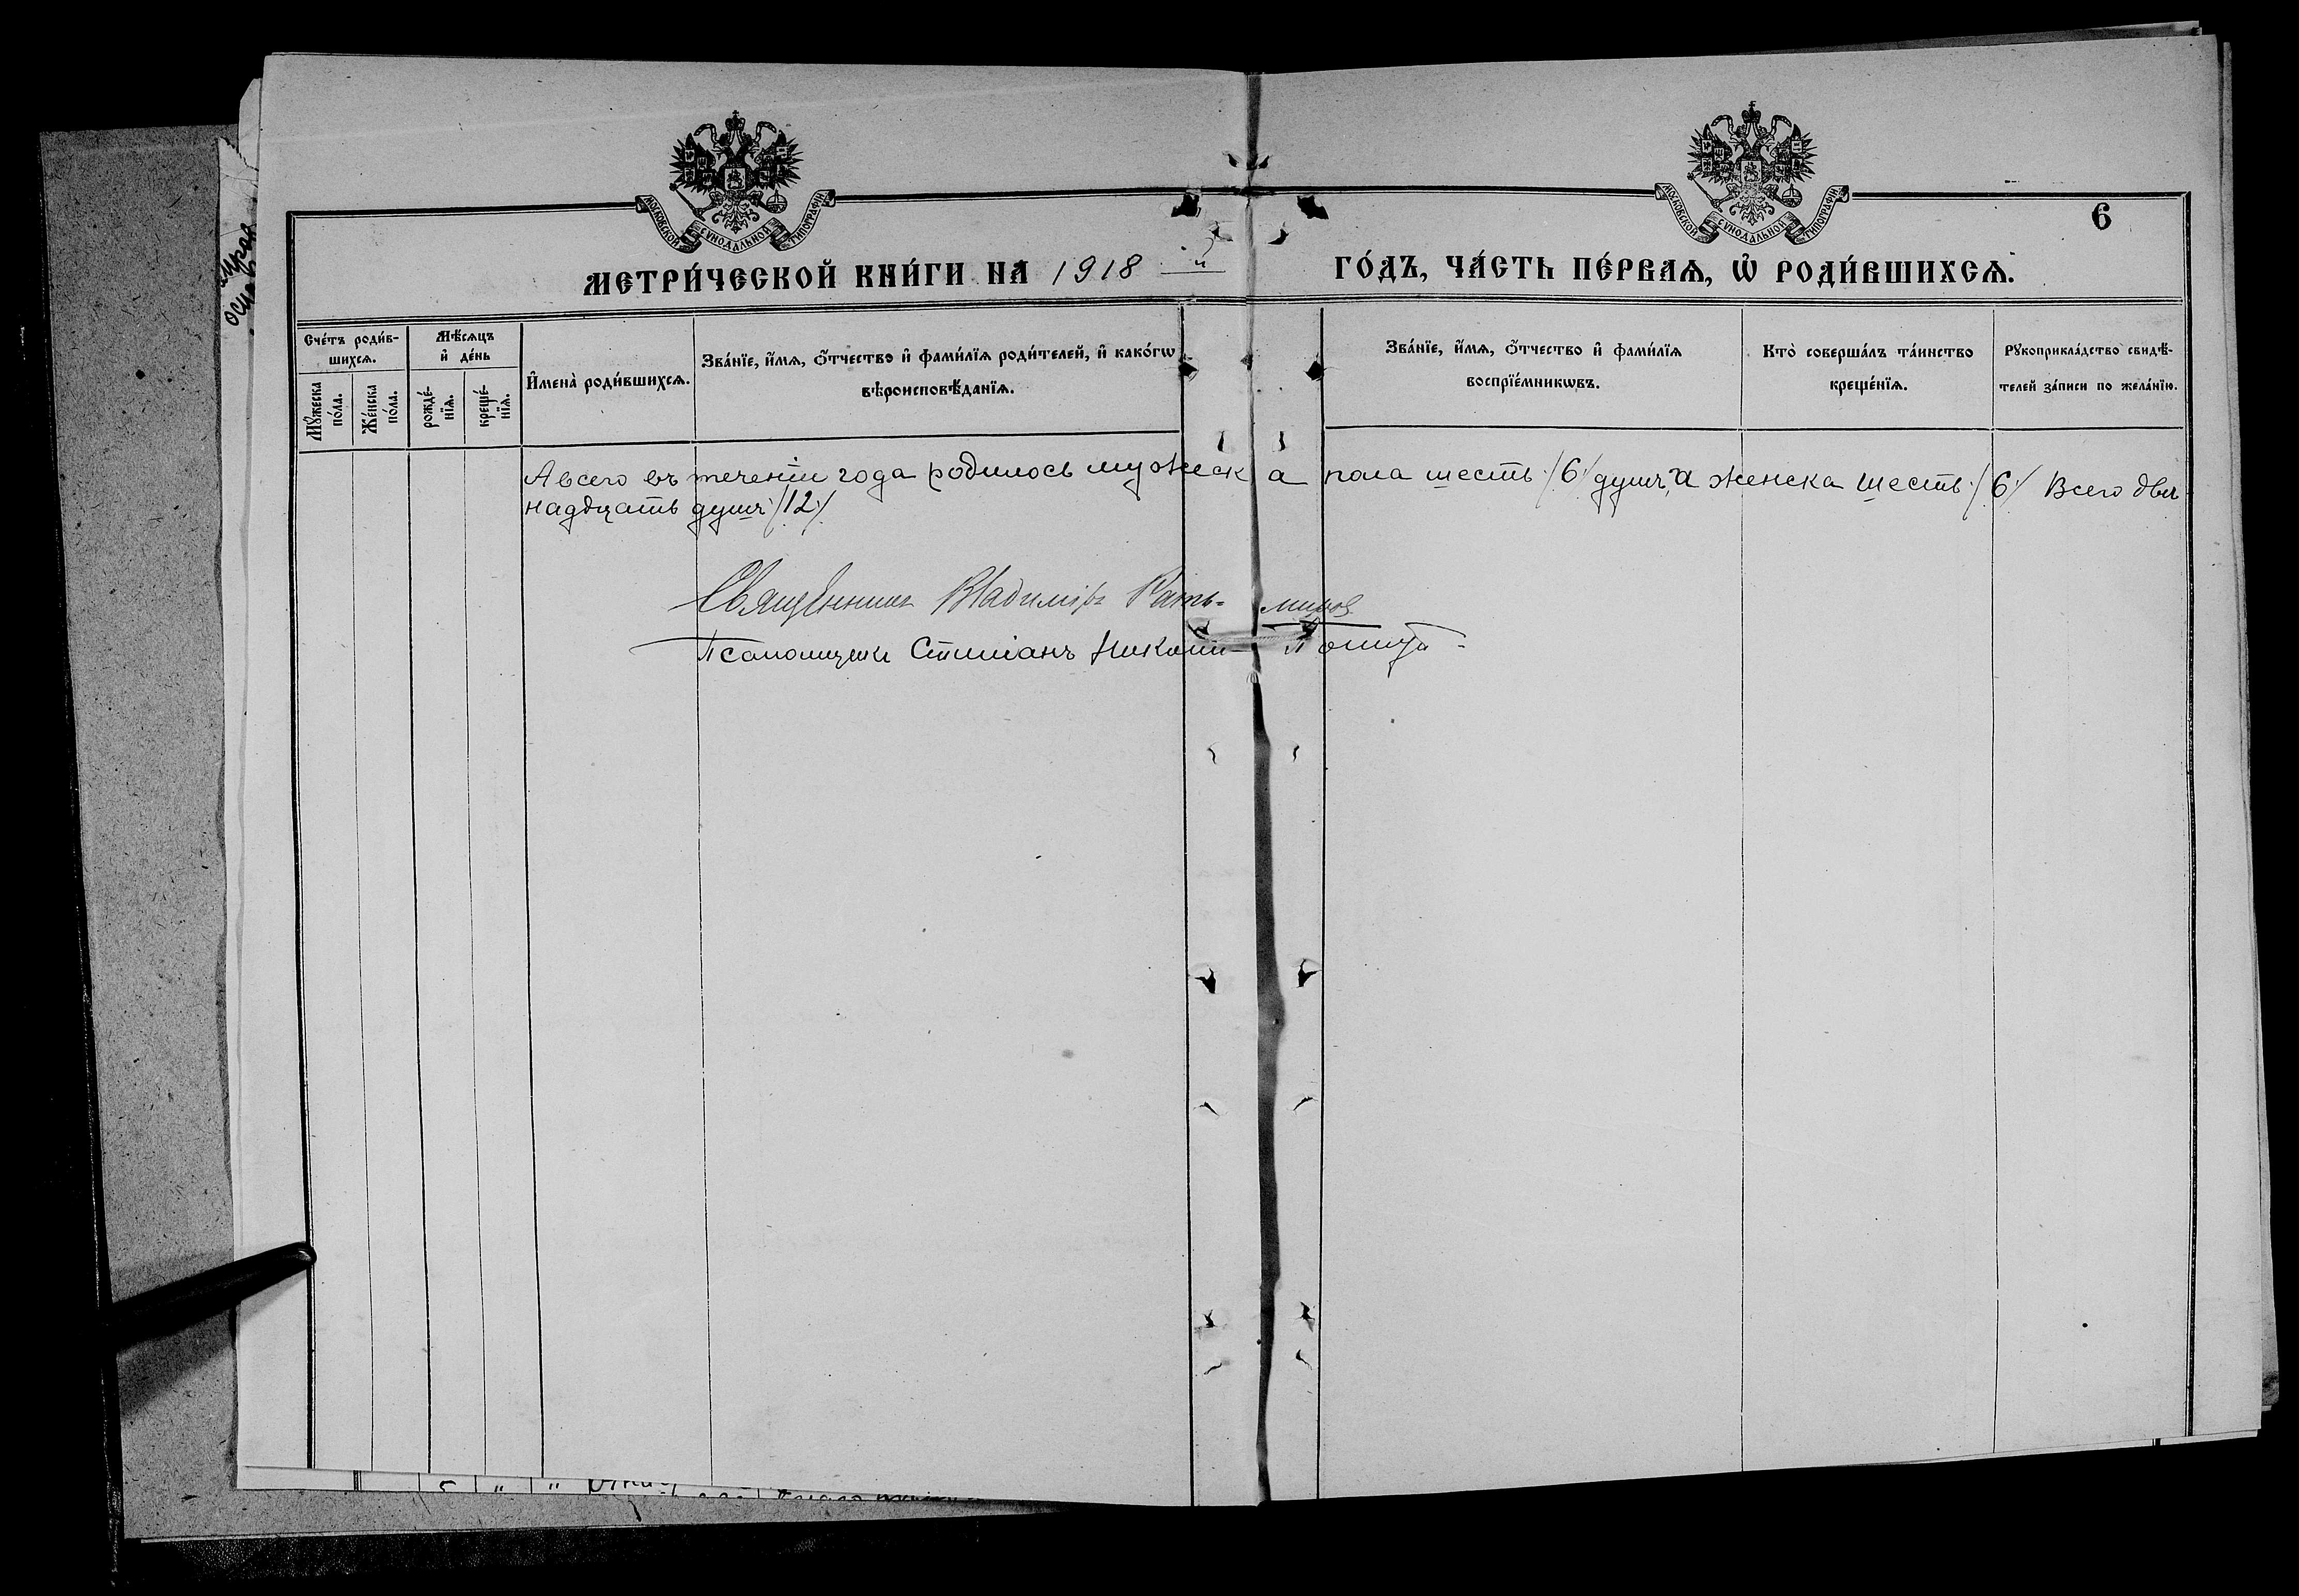 МОСКОВСКОЙ СѴНОДАЛЬНОЙ ТИПОГРАФІИ
МОСКОВСКОЙ СѴНОДАЛЬНОЙ ТИПОГРАФІИ
6
МЕТРИ́ЧЕСКОЙ КНИ́ГИ НА 1918 й ГО́ДЪ, ЧА́СТЬ ПЕ́РВАѦ, Ѡ҆ РОДИ́ВШИХСѦ.
Сче́тъ роди́в-
шихсѧ.
Мꙋ́жеска по́ла.
Же́нска по́ла.
Мѣ́сѧцъ
и҆ де́нь
рожде́-
нїѧ.
креще́-
нїѧ.
И҆мена̀ роди́вшихсѧ.
Зва́нїе, и҆́мѧ, ѻ҆́тчество и҆ фами́лїѧ роди́телей, и҆ како́гѡ
вѣроисповѣ́данїѧ.
Зва́нїе, и҆́мѧ, ѻ҆́тчество и҆ фами́лїѧ
воспрїе́мникѡвъ.
Кто̀ соверша́лъ та́инство
креще́нїѧ.
Рꙋкоприкла́дство свидѣ́-
телей за́писи по жела́нїю.
А всего въ теченіи года родилось мужеска пола шесть /6/ душъ, а женска шесть /6/ Всего двѣ
надцать душъ /12/
Священникъ Владиміръ Ратьмиров
Псаломщикъ